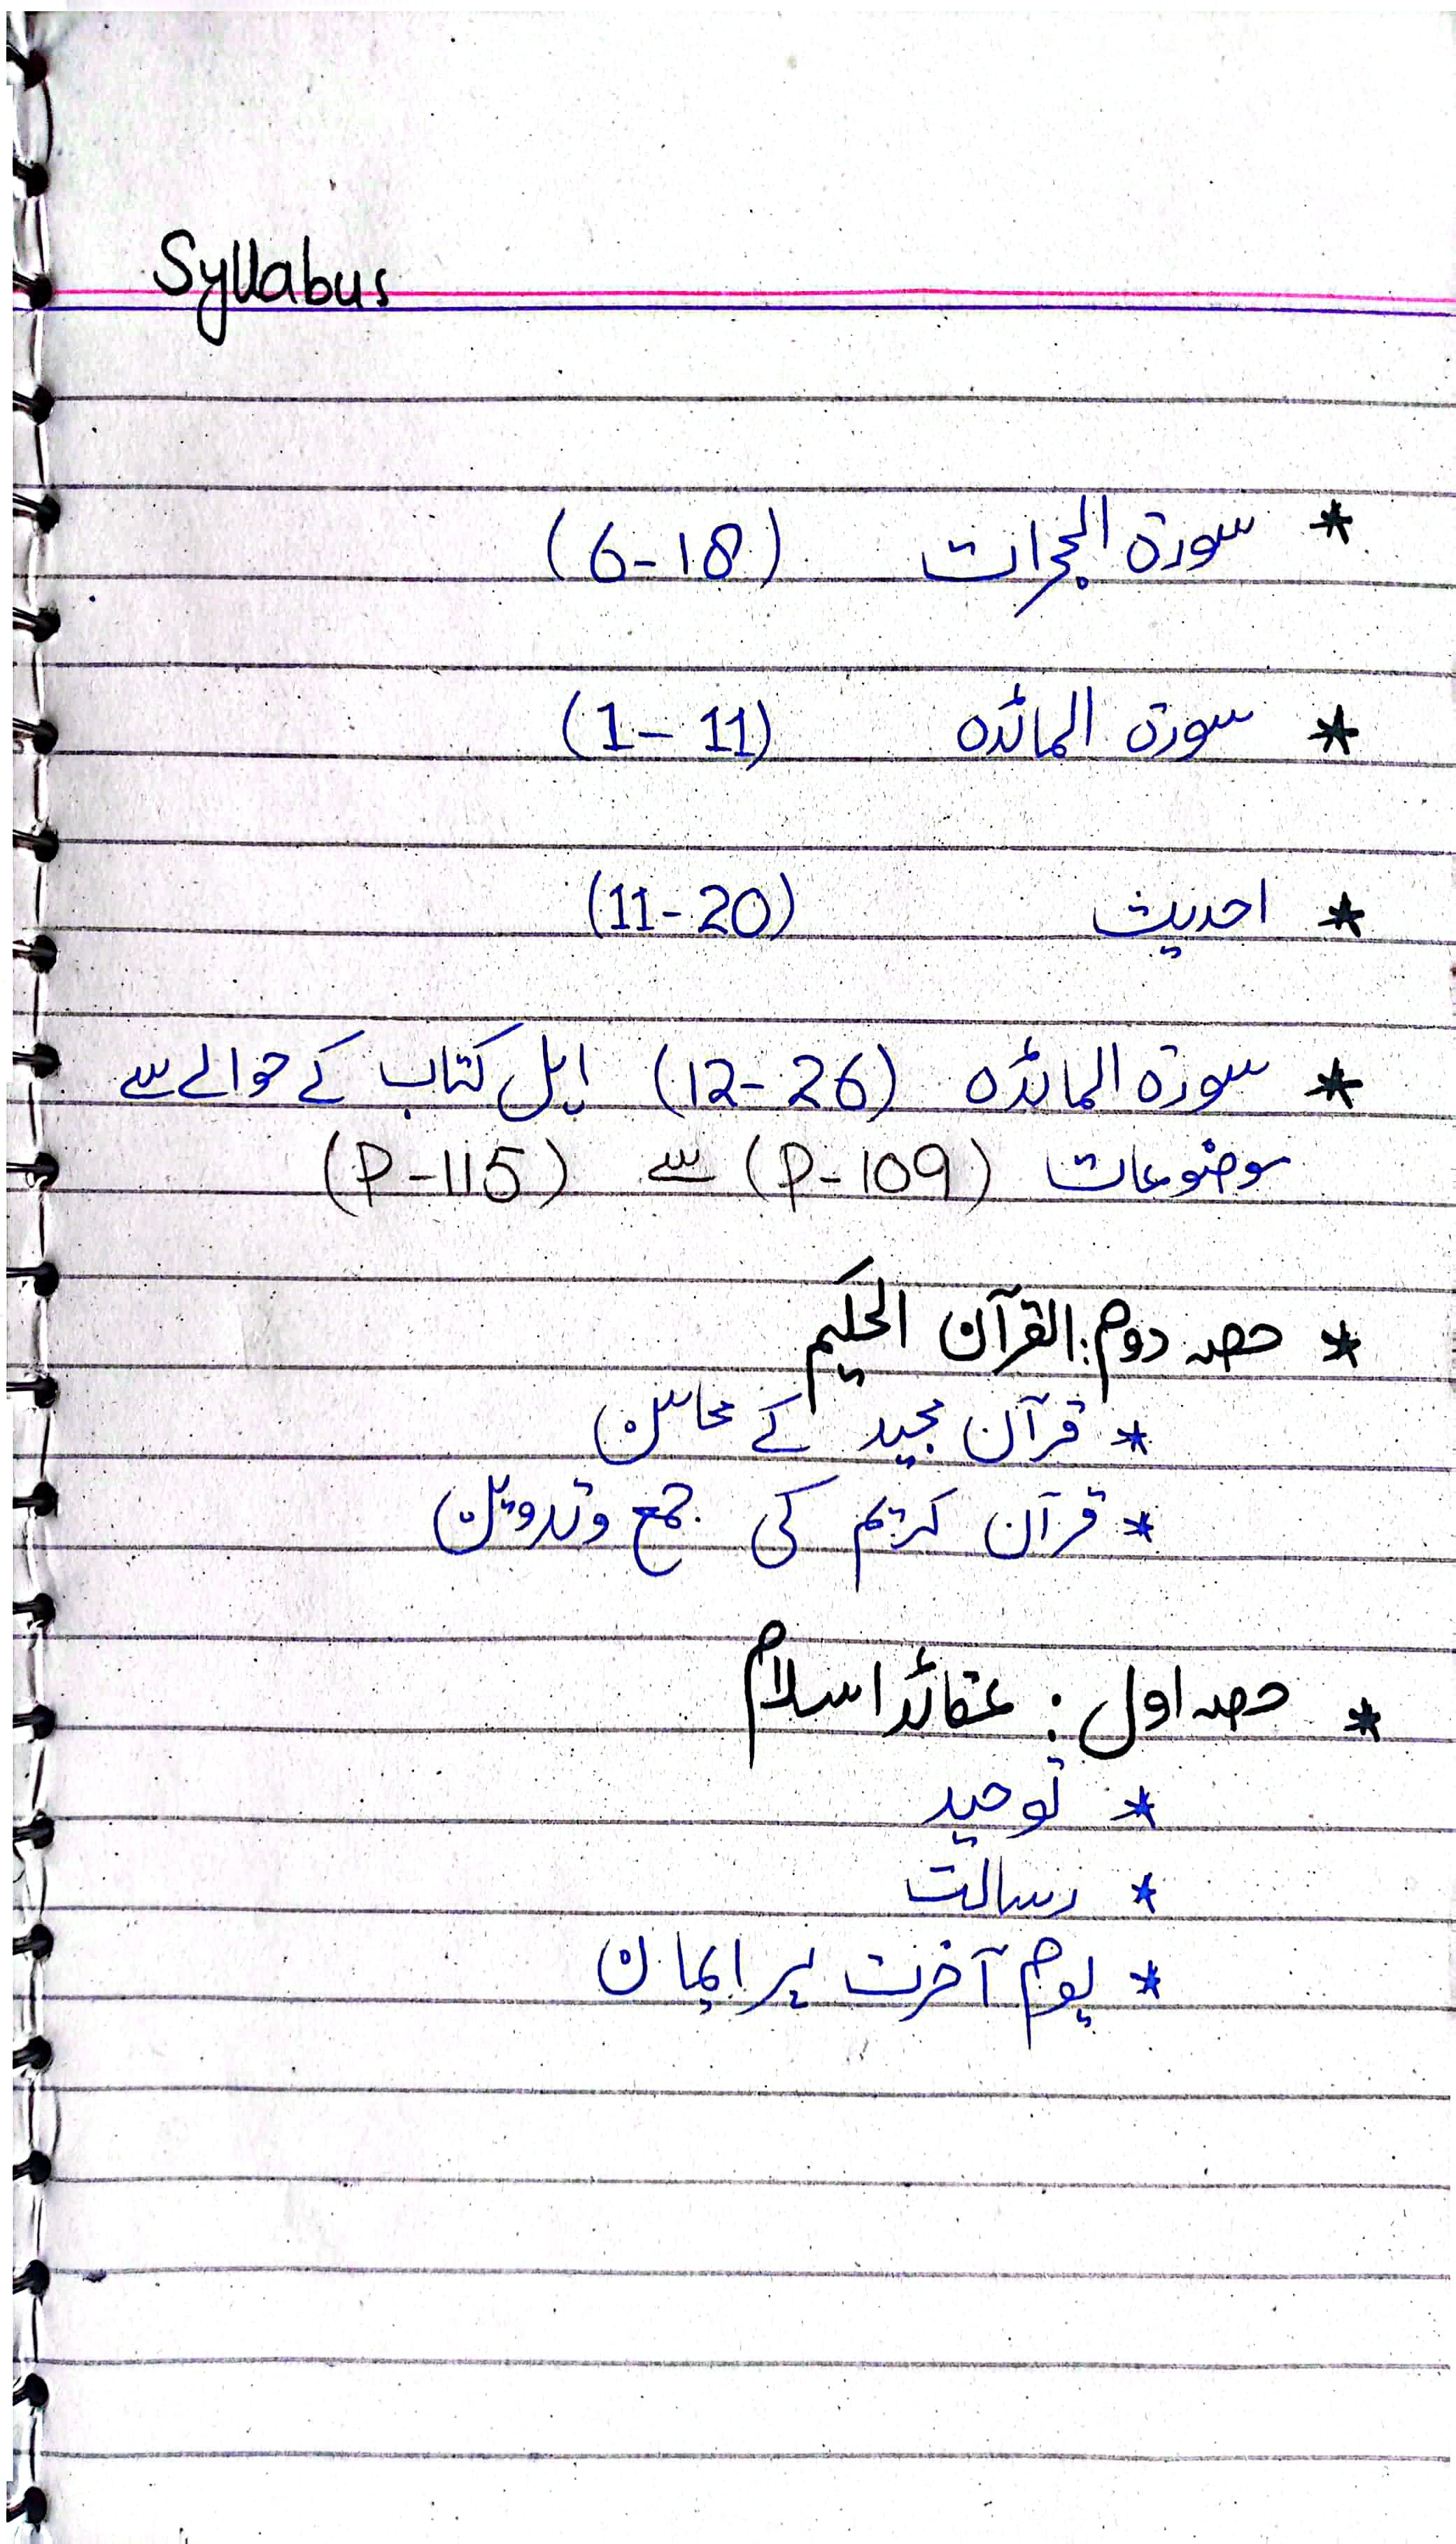 Syllabus
* سورۃ الحجرات (6-18)
* سورۃ المائدہ (1-11)
* احدیث (11-20)
* سورۃ المائدہ (12-26) اہل کتاب کے حوالے سے
موضوعات (P-109) سے (P-115)
* حصہ دوم: القرآن الحکیم
* قرآن مجید کے محاسن
* قرآن کریم کی جمع وتدوین
* حصہ اول: عقائد اسلام
* توحید
* رسالت
* یوم آخرت پر ایمان